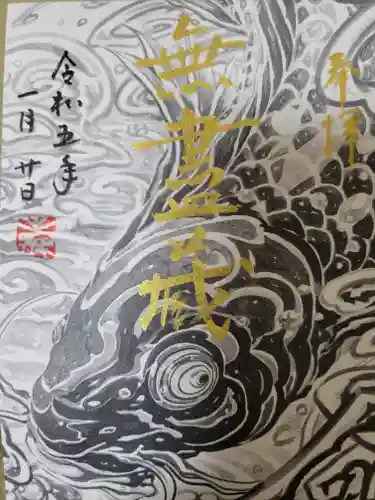 奉拝
無盡蔵
令和五年
一月廿日